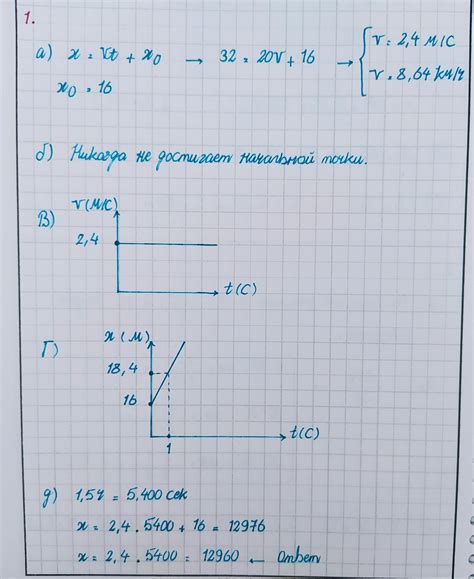 1.
а) x = vt + x₀ → 32 = 20v + 16 → { v = 2,4 м/с
x₀ = 16 v = 8,64 км/ч
б) Никогда не достигает начальной точки.
В) v(м/с)
2,4
t(c)
Г) x(м)
18,4
16
1
t(c)
д) 1,5ч = 5,400 сек
x = 2,4 . 5400 + 16 = 12976
x = 2,4 . 5400 = 12960 ← ответ